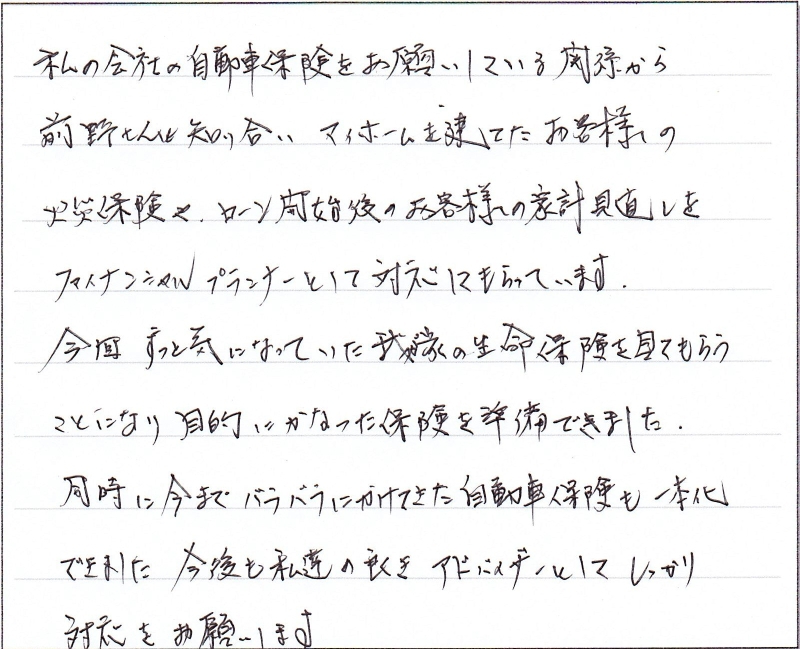 私の会社の自動車保険をお願いしている関係から
前野さんと知り合い マイホームを建てたお客様の
火災保険や、ローン開始後のお客様の家計見直しを
ファイナンシャルプランナーとして対応してもらっています.
今回 ずっと気になっていた我が家の生命保険を見てもらう
ことになり 目的にかなった保険を準備できました.
同時に今までバラバラにかけてきた自動車保険も一本化
できました 今後も私達の良き アドバイザーとして しっかり
対応をお願いします